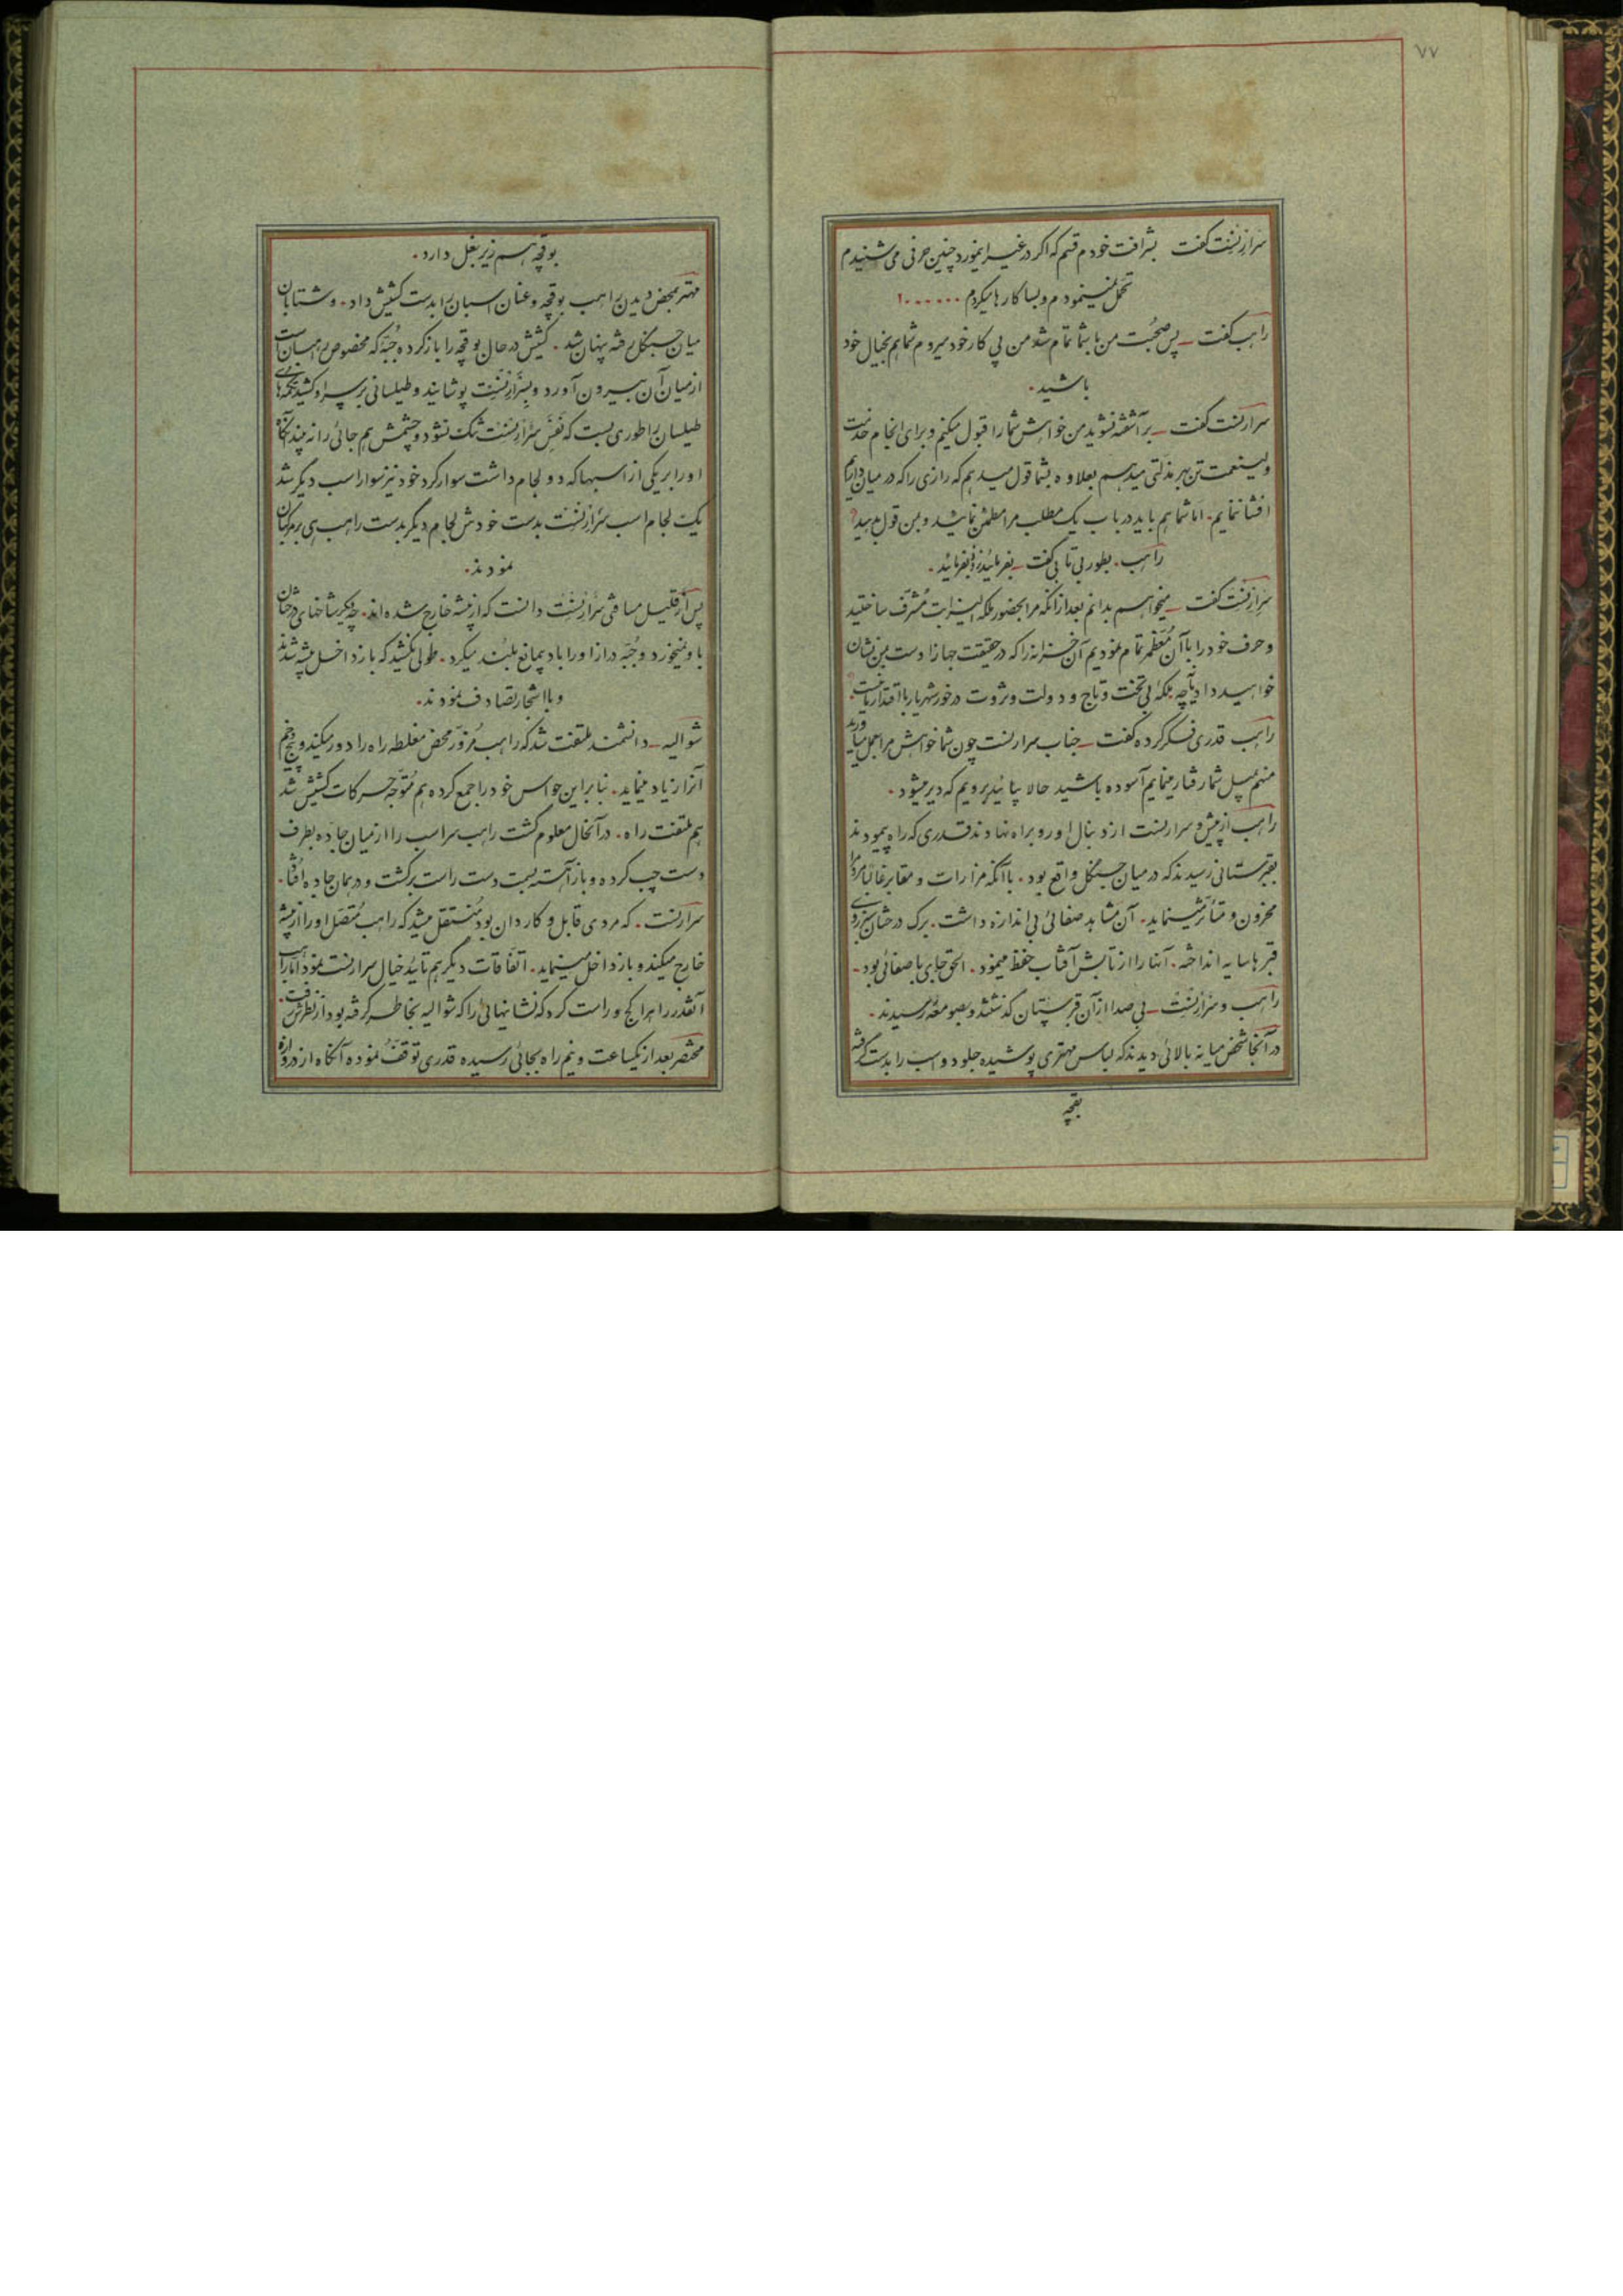 ۷۷
سرارنست گفت بشرافت خودم قسم که اگر در غیر اینمورد چنین حرفی می شنیدم
تحمل نمینمودم و بسا کارها میکردم ۰۰۰۰۰۰۱
راهب گفت ـ پس صحبت من با شما تمام شد من پی کار خود میروم شما هم بخیال خود
باشید۰
سرارنست گفت ـ برآشفته نشوید من خواهش شما را قبول میکنم و برای انجام خدمت
ولینعمت تن بهر مذلتی میدهم بعلاوه بشما قول میدهم که رازی را که در میان داریم
افشا ننمایم۰ اما شما هم باید در باب یک مطلب مرا مطمئن نمائید و بمن قول بدهید؟
راهب۰ بطور بی تابی گفت ـ بفرمائید زود بفرمائید۰
سرارنست گفت ـ میخواهم بدانم بعد از آنکه مرا بحضور ملکه الیزابت مشرف ساختید
و حرف خود را با آن معظم تمام نمودیم آن خزانه را که در حقیقت جهاز اوست بمن نشان
خواهید داد یا نه چه ملکه بی تخت و تاج و دولت و ثروت در خور شهریار با اقتدار ما نیست؟
راهب قدری فکر کرده گفت ـ جناب سرارنست چون شما خواهش مرا بعمل میآورید
منهم بمیل شما رفتار مینمایم آسوده باشید حالا بیائید برویم که دیر میشود۰
راهب از پیش و سرارنست از دنبال او رو براه نهادند قدری که راه پیمودند
بقبرستانی رسیدند که در میان جنگل واقع بود۰ با آنکه مزارات و مقابر غالبا مرد را
محزون و متأثر مینماید۰ آن مشاهد صفائی بی اندازه داشت۰ برگ درختان سبز بروی
قبرها سایه انداخته۰ آنها را از تابش آفتاب حفظ مینمود۰ الحق جای با صفائی بود۰
راهب و سرارنست ـ بی صدا از آن قبرستان گذشتند و بصومعه رسیدند۰
در آنجا شخص میانه بالائی دیدند که لباس مهتری پوشیده جلو دو اسب را بدست گرفته
بقچه
بوقچه هم زیر بغل دارد۰
مهتر بمحض دیدن راهب بوقچه و عنان اسبان را بدست کشیش داد۰ و شتابان
میان جنگل رفته پنهان شد۰ کشیش در حال بوقچه را باز کرده جبه که مخصوص رهبانست
از میان آن بیرون آورد و بسرارنست پوشانید و طیلسانی بر سر او کشید تکمه های
طیلسان را طوری بست که نفس سرارنست تنگ نشود و چشمش هم جائی را نه بیند آنگاه
او را بر یکی از اسبها که دو لجام داشت سوار کرد خود نیز سوار اسب دیگر شد
یک لجام اسب سرارنست بدست خودش لجام دیگر بدست راهب هی بر مرکبان
نمودند۰
پس از قلیل مسافتی سرارنست دانست که از بیشه خارج شده اند۰ چه دیگر شاخهای درختان
باو نمیخورد و جبه دراز او را باد بیمانع بلند میکرد۰ طولی نکشید که باز داخل بیشه شدند
و با اشجار تصادف نمودند۰
شوالیه ـ دانشمند ملتفت شد که راهب مزور محض مغلطه راه را دور میکند و پیچ و خم
آنرا زیاد مینماید۰ بنابراین حواس خود را جمع کرده هم متوجه حرکات کشیش شد
هم ملتفت راه۰ در آنحال معلوم گشت راهب سر اسب را از میان جاده بطرف
دست چپ کرده و باز آهسته بسمت دست راست برگشت و در همان جاده افتاد۰
سرارنست۰ که مردی قابل و کاردان بود منتقل میشد که راهب متصل او را از بیشه
خارج میکند و باز داخل مینماید۰ اتفاقات دیگر هم تأیید خیال سرارنست نمود اما راهب
آنقدر راه را کج و راست کرد که نشانهائی را که شوالیه بخاطر گرفته بود از نظرش رفت۰
مختصر بعد از یکساعت و نیم راه بجائی رسیده قدری توقف نموده آنگاه از دروازه